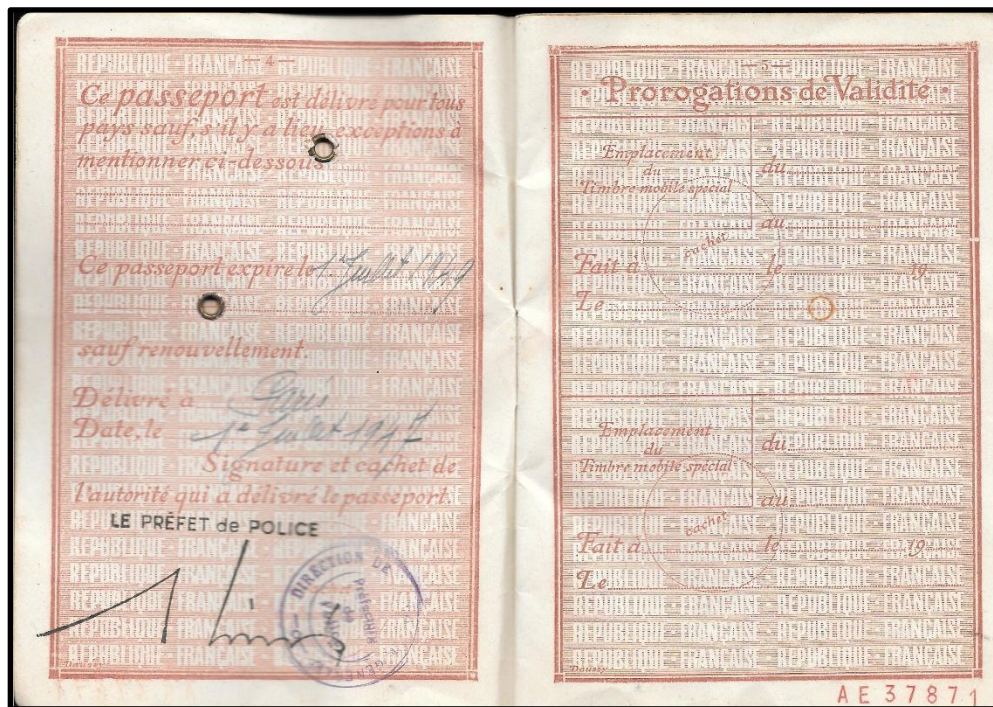 — 4 —
Ce passeport est délivré pour tous
pays sauf, s'il y a lieu, exceptions à
mentionner ci-dessous
Ce passeport expire le 1er Juillet 1949
sauf renouvellement.
Délivré à Paris
Date, le 1er Juillet 1947
Signature et cachet de
l'autorité qui a délivré le passeport.
LE PRÉFET de POLICE
DIRECTION DE
Préfecture
de
Police
— 5 —
• Prorogations de Validité •
Emplacement
du
Timbre mobile spécial
du
au
cachet
Fait à le 19
Le
Emplacement
du
Timbre mobile spécial
du
au
cachet
Fait à le 19
Le
RÉPUBLIQUE - FRANÇAISE - RÉPUBLIQUE - FRANÇAISE
AE 37871